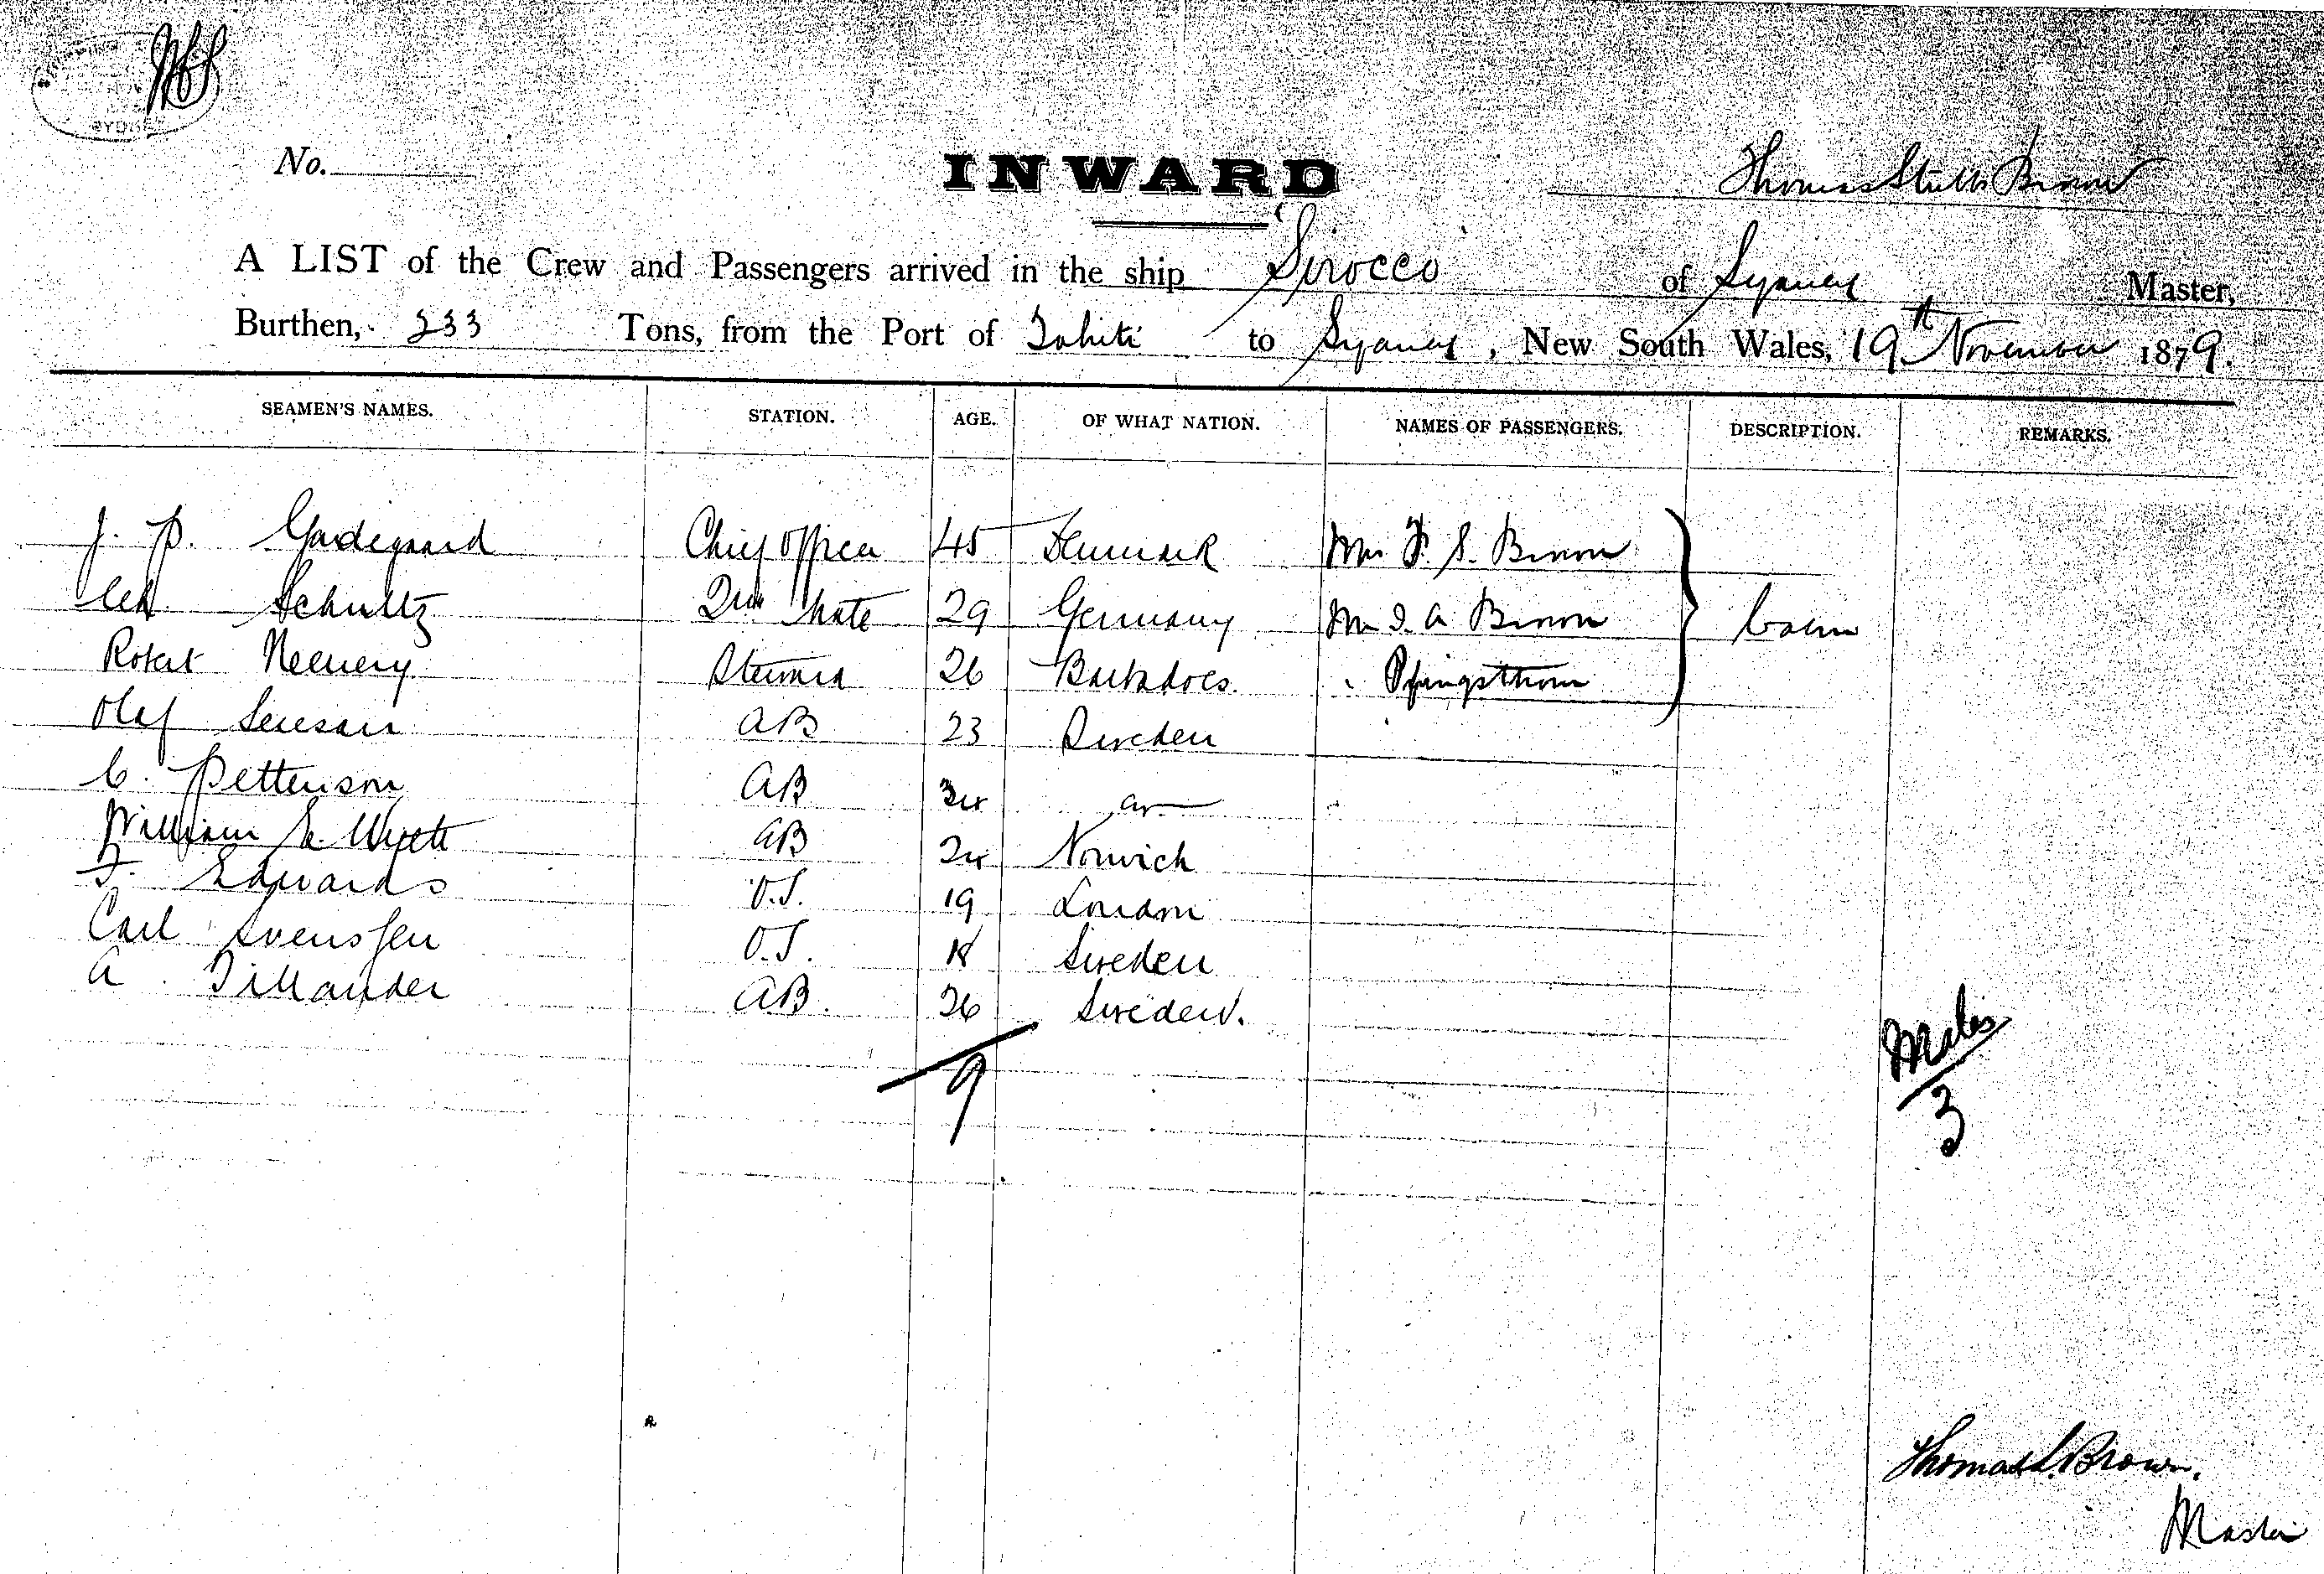 SYDNEY
No.
INWARD
Thomas Stubbs Brown
A LIST of the Crew and Passengers arrived in the ship Sirocco of Sydney Master,
Burthen, 233 Tons, from the Port of Tahiti to Sydney, New South Wales, 19th November 1879.
SEAMEN'S NAMES. STATION. AGE. OF WHAT NATION. NAMES OF PASSENGERS. DESCRIPTION. REMARKS.
J. P. Gadegaard Chief Officer 45 Denmark S. Brown
Schultz 2nd Mate 29 Germany Mr A Brown Cabin
Robert Steward 26 Barbadoes " Pfingsthorn
Olaf AB 23 Sweden
C. Petterson AB 34 do
William AB 24 Norwich
F. Edwards O.S. 19 London
Carl Svenssen O.S. 18 Sweden
A. Tillander AB. 26 Sweden.
9
Males
3
Thomas S. Brown.
Master